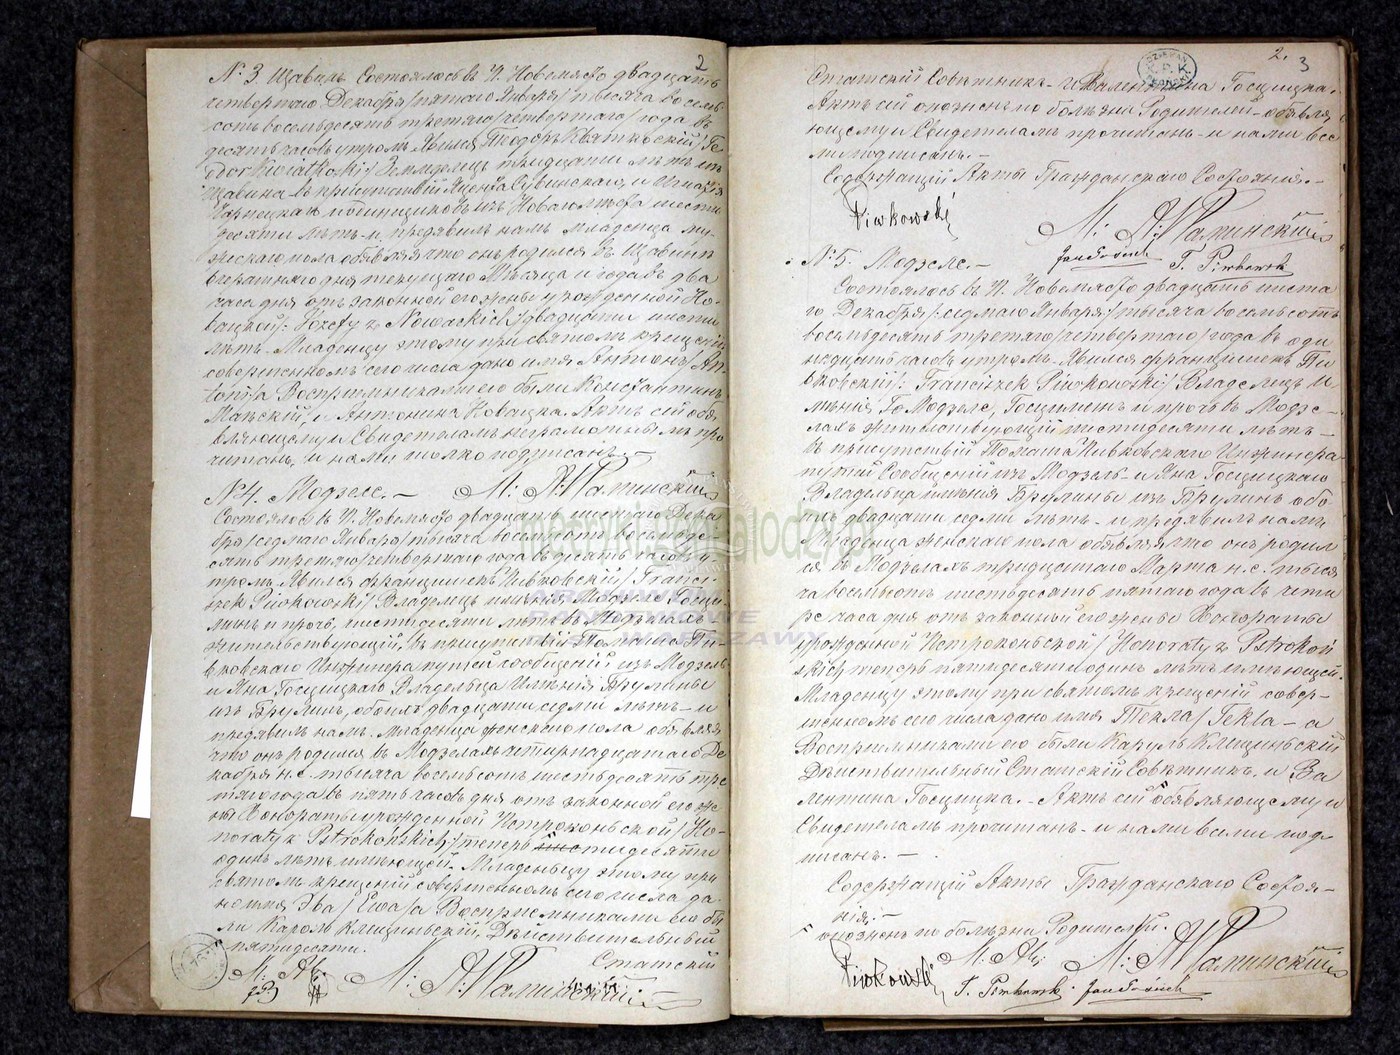 2
№ 3 Щавинъ Состоялось въ П. Новемясто двадцать
четвертаго Декабря /пятаго Января/ тысяча восемь
сотъ восемьдесятъ третяго /четвертаго/ года въ
десять часовъ утромъ. Явился Теодоръ Квятковскій /Te-
odor Kwiatkoski/ Земледѣлецъ тридцати лѣтъ изъ
Щавина въ присутствій и Игнатія
изъ Новаго шести
десяти лѣтъ и предявилъ намъ младенца му-
жескаго пола объявляя что онъ родился въ Щавинѣ
дня текущаго Мѣсяца и года въ два
часа дня отъ законной его жены урожденной Но-
вацкой /: Józefy z Nowackich/ двадцати шести
лѣтъ. Младенцу этому при святомъ крещеніи
совершенномъ сего числа дано имя Антонъ /An-
toni/ а Воспріемниками его были Константинъ
и Антонина Новацка. Актъ сей объя
вляющему и Свидетелямъ неграмотнымъ про
читанъ, и нами только подписанъ. —
№ 4. Модзеле. —
Состоялось въ П. Новемясто двадцать шестаго Дека
бря /седмаго Января/ тысяча восемьсотъ восемьде-
сятъ третяго /четвертаго года въ десять часовъ у
тромъ. Явился Францишекъ Пивковскій / Franci-
szek Piwkowski / Владѣлецъ имѣнія Модзеле Госци-
минъ и прочъ, шестидесяти лѣтъ въ Модзеляхъ
жительствующій, въ присутствіи Томаша Пи-
вковскаго Инжинера путей сообщеній изъ Модзель
и Яна Госцицкаго Владѣльца Имѣнія Брулины
изъ Брулинъ, обоихъ двадцати седми лѣтъ — и
предявилъ намъ Младенца женскаго пола объявляя
что онъ родился въ Модзеляхъ четырнадцатаго Де
кабря н. с. тысяча восемьсотъ шестьдесятъ тре
тяго года въ пять часовъ дня отъ законной его же
ны Гоноратыурожденной Петроконьской / Ho-
noraty z Pstrokońskich / теперь пятидесяти
одинъ лѣтъ имѣющей. Младенцу этому при
святомъ крещеніи совершенномъ сего числа да
но имя Эва / Ewa / а Воспріемниками его бы
ли Кароль Клещиньскій, Дѣйствительный
пятидесяти.
Статскій
2.
3
Статскій Совѣтникъ и Валентина Госцицка.
Актъ сей опозненъ по болѣзни Родители объявля
ющему и Свидетелямъ прочитанъ и нами все
ми подписанъ. —
Содержащій Акты Гражданскаго Состоянія. —
Piwkowski
№ 5. Модзеле. —
T. Piwkowski
Состоялось въ П. Новемясто двадцать шеста
го Декабря /: седмаго Января / тысяча восемь сотъ
восемьдесятъ третяго /четвертаго / года въ оди
надцать часовъ утромъ. Явился Францишекъ Пи
вковскій /: Franciszek Piwkowski / Владѣлецъ И-
мѣнія Модзеле, Госциминъ и прочъ въ Модзе-
ляхъ жительствующій шестидесяти лѣтъ —
въ присутствій Томаша Пивковскаго Инжинера
путей Сообщеній изъ Модзель и Яна Госцицкаго
Владѣльца имѣнія Брулины изъ Брулинъ обо
ихъ двадцати седми лѣтъ и предявилъ намъ
Младенца женскаго пола объявляя что онъ родил
ся въ Модзеляхъ тридцатаго Марта н. с. тыся
ча восемьсотъ шестьдесятъ пятаго года въ четы
ре часа дня отъ законной его жены Гонораты
урожденной Петроконьской / Honoraty z Pstrokoń
skich теперь пятидесяти одинъ лѣтъ имѣющей.
Младенцу этому при святомъ крещеній совер-
шенномъ сего числа дано имя Текла / Tekla — а
Воспріемниками его были Кароль Клещиньскій
Дѣйствительный Статскій Совѣтникъ и Ва
лентина Госцицка. — Актъ сей объявляющему и
Свидетелямъ прочитанъ и нами всеми под
писанъ. —
Содержащій Акты Гражданскаго Состоя-
нія. —
опозненъ по болѣзни Родителей.
Piwkowski
T. Piwkowski
metryki.genealodzy.pl
ARCHIWUM
PAŃSTWOWE
WARSZAWY